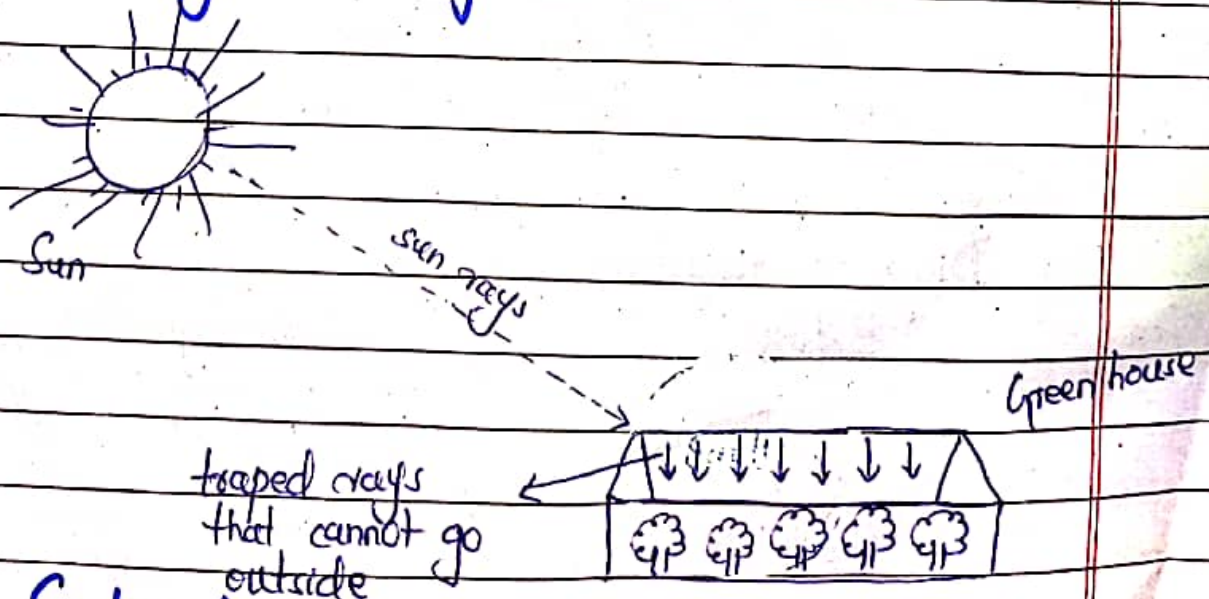 Sun
sun rays
Green house
traped rays
that cannot go
outside